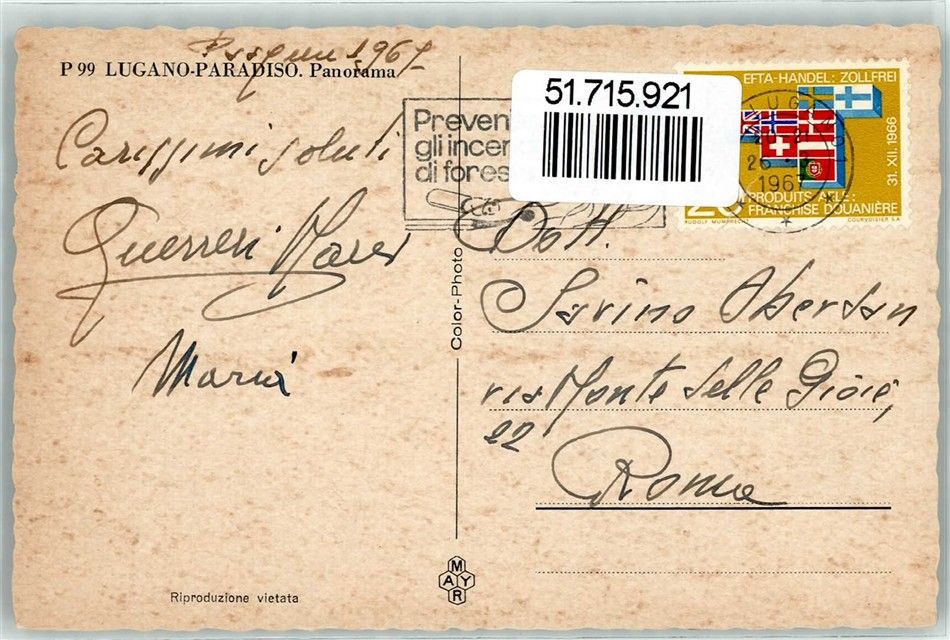 Pasqua 1967
P 99 LUGANO-PARADISO. Panorama
Carissimi saluti
Guerreri
Maria
Preven
gli incen
di fores
51.715.921
EFTA-HANDEL: ZOLLFREI
31. XII. 1966
LUGANO
26
1967
20
PRODUITS AELE:
FRANCHISE DOUANIÈRE
RUDOLF MUMPRECHT
COURVOISIER S A
Color-Photo
Dott.
Savino Oberdan
via Monte delle Gioie,
22
Roma
MAYR
Riproduzione vietata